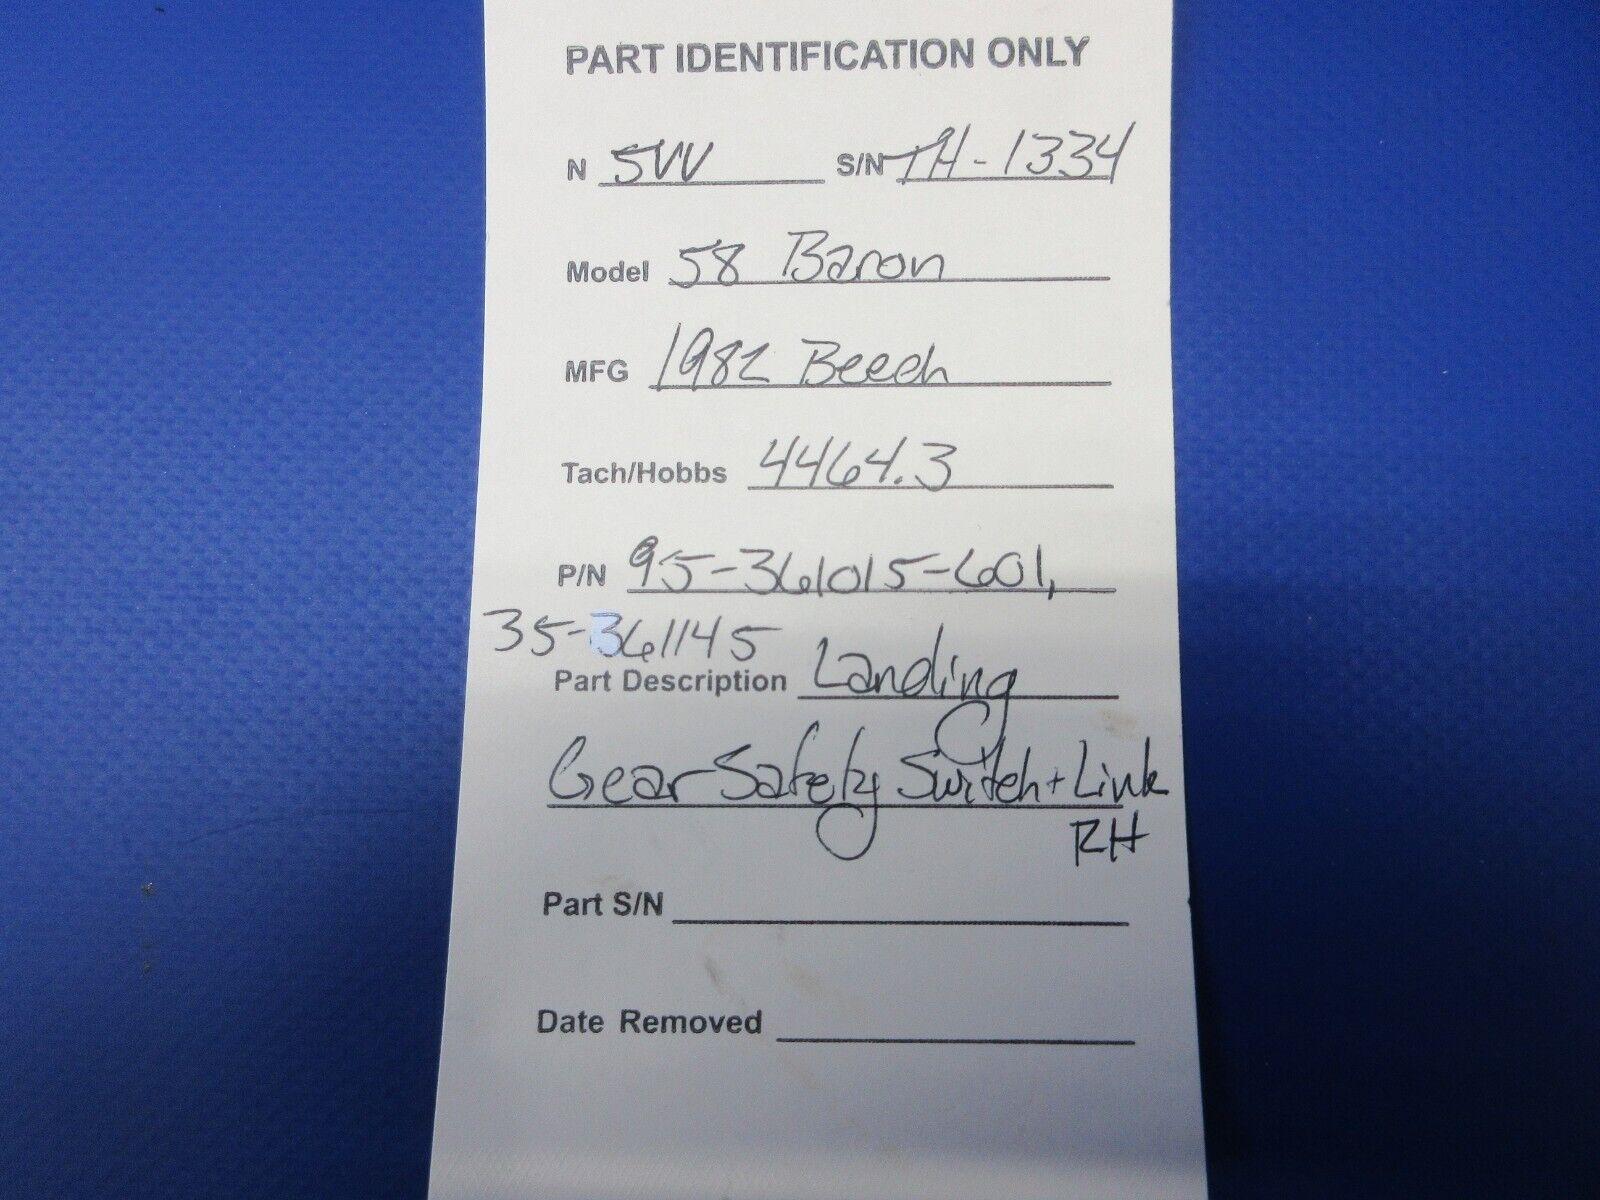 PART IDENTIFICATION ONLY
N 5VV S/N TH-1334
Model 58 Baron
MFG 1982 Beech
Tach/Hobbs 4464.3
P/N 95-361015-601,
35-361145
Part Description Landing
Gear Safety Switch + Link
RH
Part S/N
Date Removed